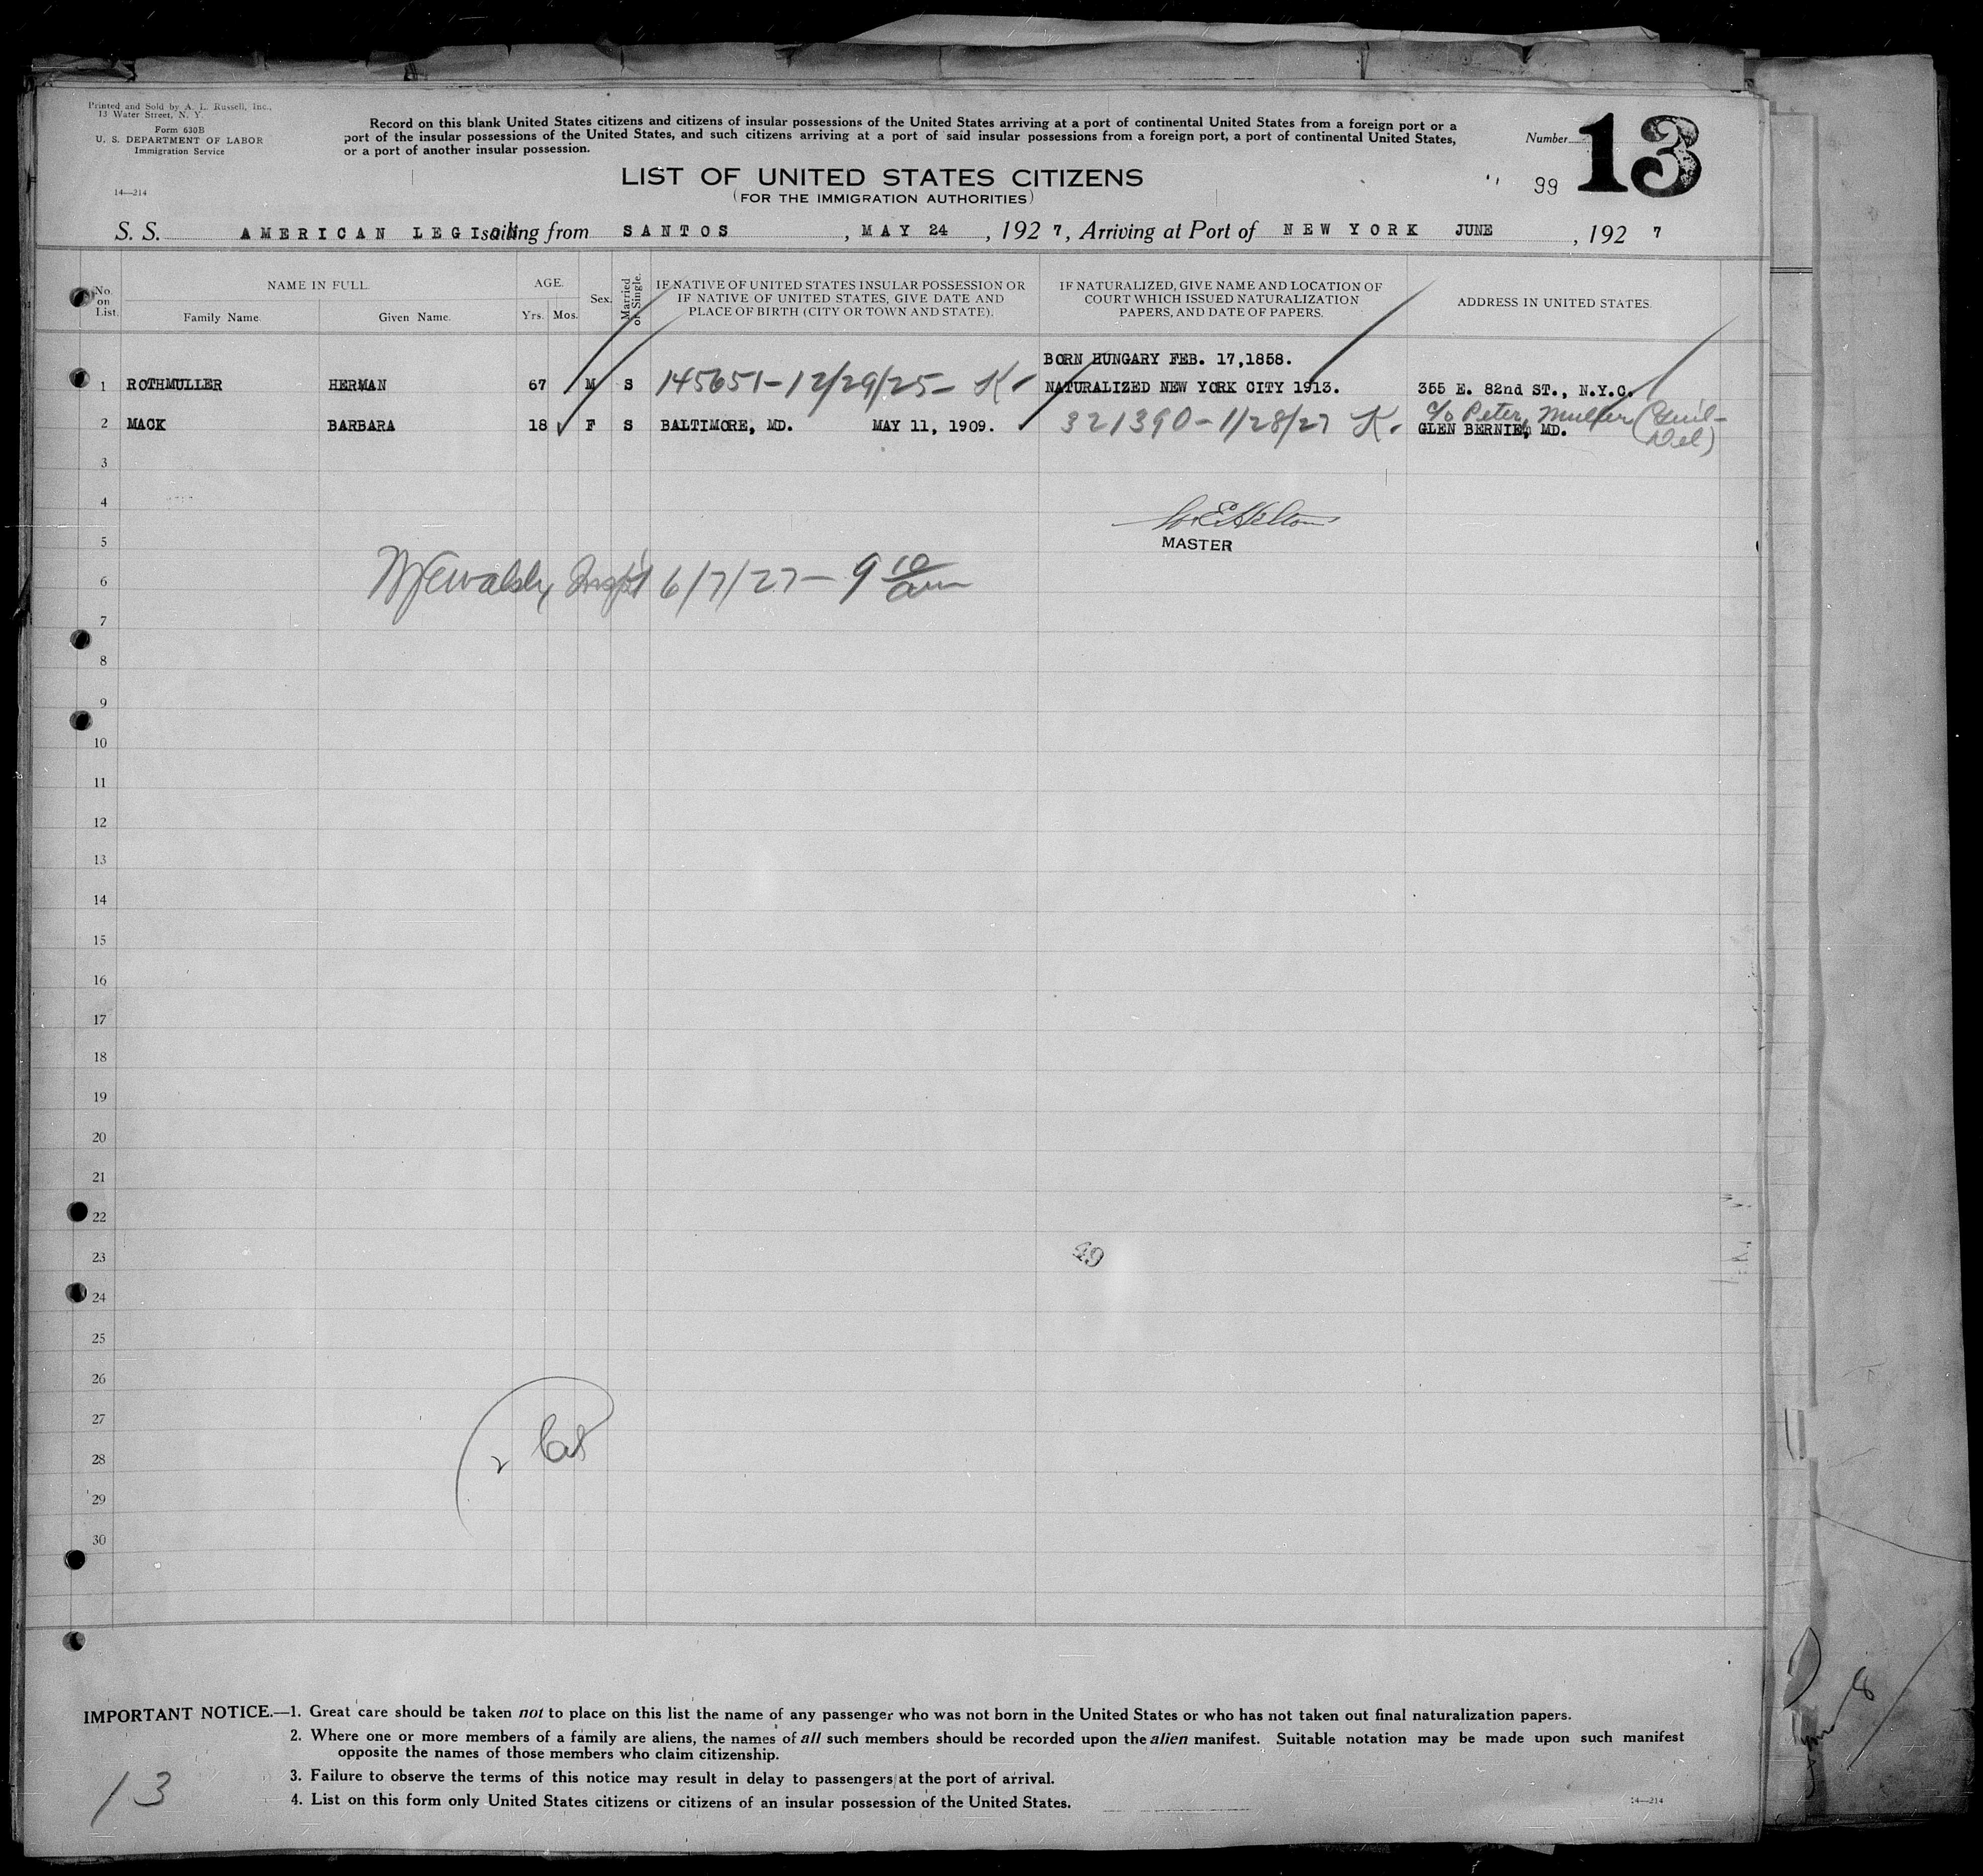 Printed and Sold by A. L. Russell, Inc.,
13 Water Street, N. Y.
Form 630B
U. S. DEPARTMENT OF LABOR
Immigration Service
14—214
Record on this blank United States citizens and citizens of insular possessions of the United States arriving at a port of continental United States from a foreign port or a
port of the insular possessions of the United States, and such citizens arriving at a port of said insular possessions from a foreign port, a port of continental United States,
or a port of another insular possession.
Number 13
99
LIST OF UNITED STATES CITIZENS
(FOR THE IMMIGRATION AUTHORITIES)
S. S. AMERICAN LEGION sailing from SANTOS, MAY 24, 1927, Arriving at Port of NEW YORK JUNE, 1927
No. on List. NAME IN FULL. AGE. Sex. Married or Single. IF NATIVE OF UNITED STATES INSULAR POSSESSION OR IF NATIVE OF UNITED STATES, GIVE DATE AND PLACE OF BIRTH (CITY OR TOWN AND STATE). IF NATURALIZED, GIVE NAME AND LOCATION OF COURT WHICH ISSUED NATURALIZATION PAPERS, AND DATE OF PAPERS. ADDRESS IN UNITED STATES.
Family Name. Given Name. Yrs. Mos.
BORN HUNGARY FEB. 17,1858.
1 ROTHMULLER HERMAN 67 M S 145651-12/29/25- K NATURALIZED NEW YORK CITY 1913. 355 E. 82nd ST., N.Y.C.
c/o Peter Muller
2 MACK BARBARA 18 F S BALTIMORE, MD. MAY 11, 1909. 321390-1/28/27 K. GLEN BERNIE, MD.
3
4
5
MASTER
6 Insp't 6/7/27 - 9 10 am
7
8
9
10
11
12
13
14
15
16
17
18
19
20
21
22
23
49
24
25
26
27
28
29
30
IMPORTANT NOTICE.—1. Great care should be taken not to place on this list the name of any passenger who was not born in the United States or who has not taken out final naturalization papers.
2. Where one or more members of a family are aliens, the names of all such members should be recorded upon the alien manifest. Suitable notation may be made upon such manifest
opposite the names of those members who claim citizenship.
3. Failure to observe the terms of this notice may result in delay to passengers at the port of arrival.
4. List on this form only United States citizens or citizens of an insular possession of the United States.
13
14—214
8